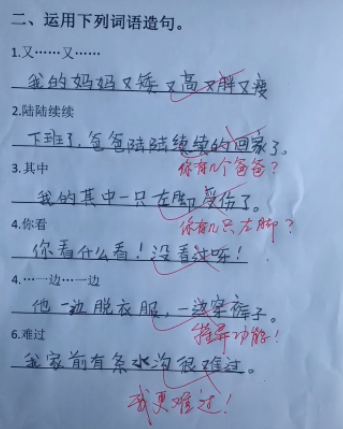 二、运用下列词语造句。
1.又……又……
我的妈妈又矮又高又胖又瘦
2.陆陆续续
下班了,爸爸陆陆续续的回家了。
你有几个爸爸?
3.其中
我的其中一只左脚受伤了。
你有几只左脚?
4.你看
你看什么看!没看过呀!
4.…一边…一边
他一边脱衣服,一边穿裤子。
推荐功能!
6.难过
我家前有条水沟很难过。
我更难过!